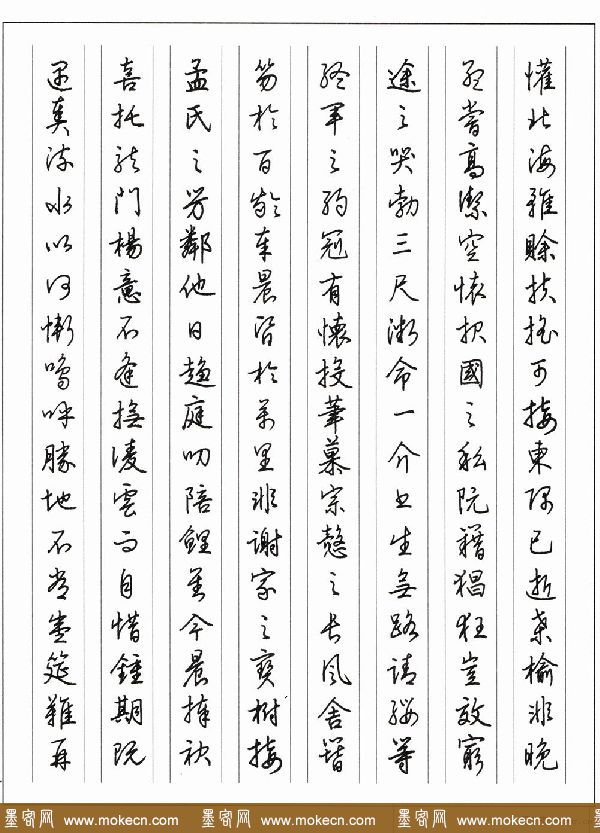 懽北海雖賒扶搖可接東隅已逝桑榆非晚
孟嘗高潔空懷报國之私阮籍猖狂豈效窮
途之哭勃三尺微命一介书生無路請纓等
終軍之弱冠有懷投筆慕宗愨之長風舍簪
笏於百齡奉晨昏於萬里非謝家之寶樹接
孟氏之芳鄰他日趨庭叨陪鯉對今晨捧袂
喜托龍門楊意不逢撫凌雲而自惜鍾期既
遇奏流水以何慚嗚呼勝地不常盛筵難再
墨客网 www.mokecn.com 墨客网 www.mokecn.com 墨客网 www.mokecn.com 墨客网 www.mokecn.com